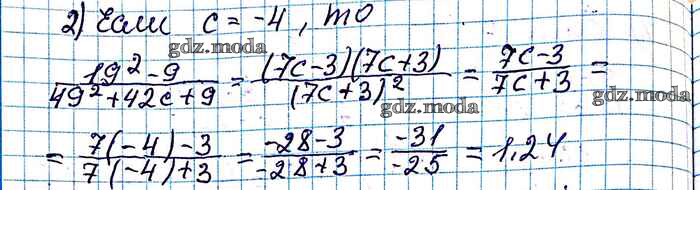 2) Если c = -4, то
gdz.moda
19² - 9 / 49² + 42c + 9 = (7c - 3)(7c + 3) / (7c + 3)² = 7c - 3 / 7c + 3 =
gdz.moda
gdz.moda
= 7(-4) - 3 / 7(-4) + 3 = -28 - 3 / -28 + 3 = -31 / -25 = 1,24